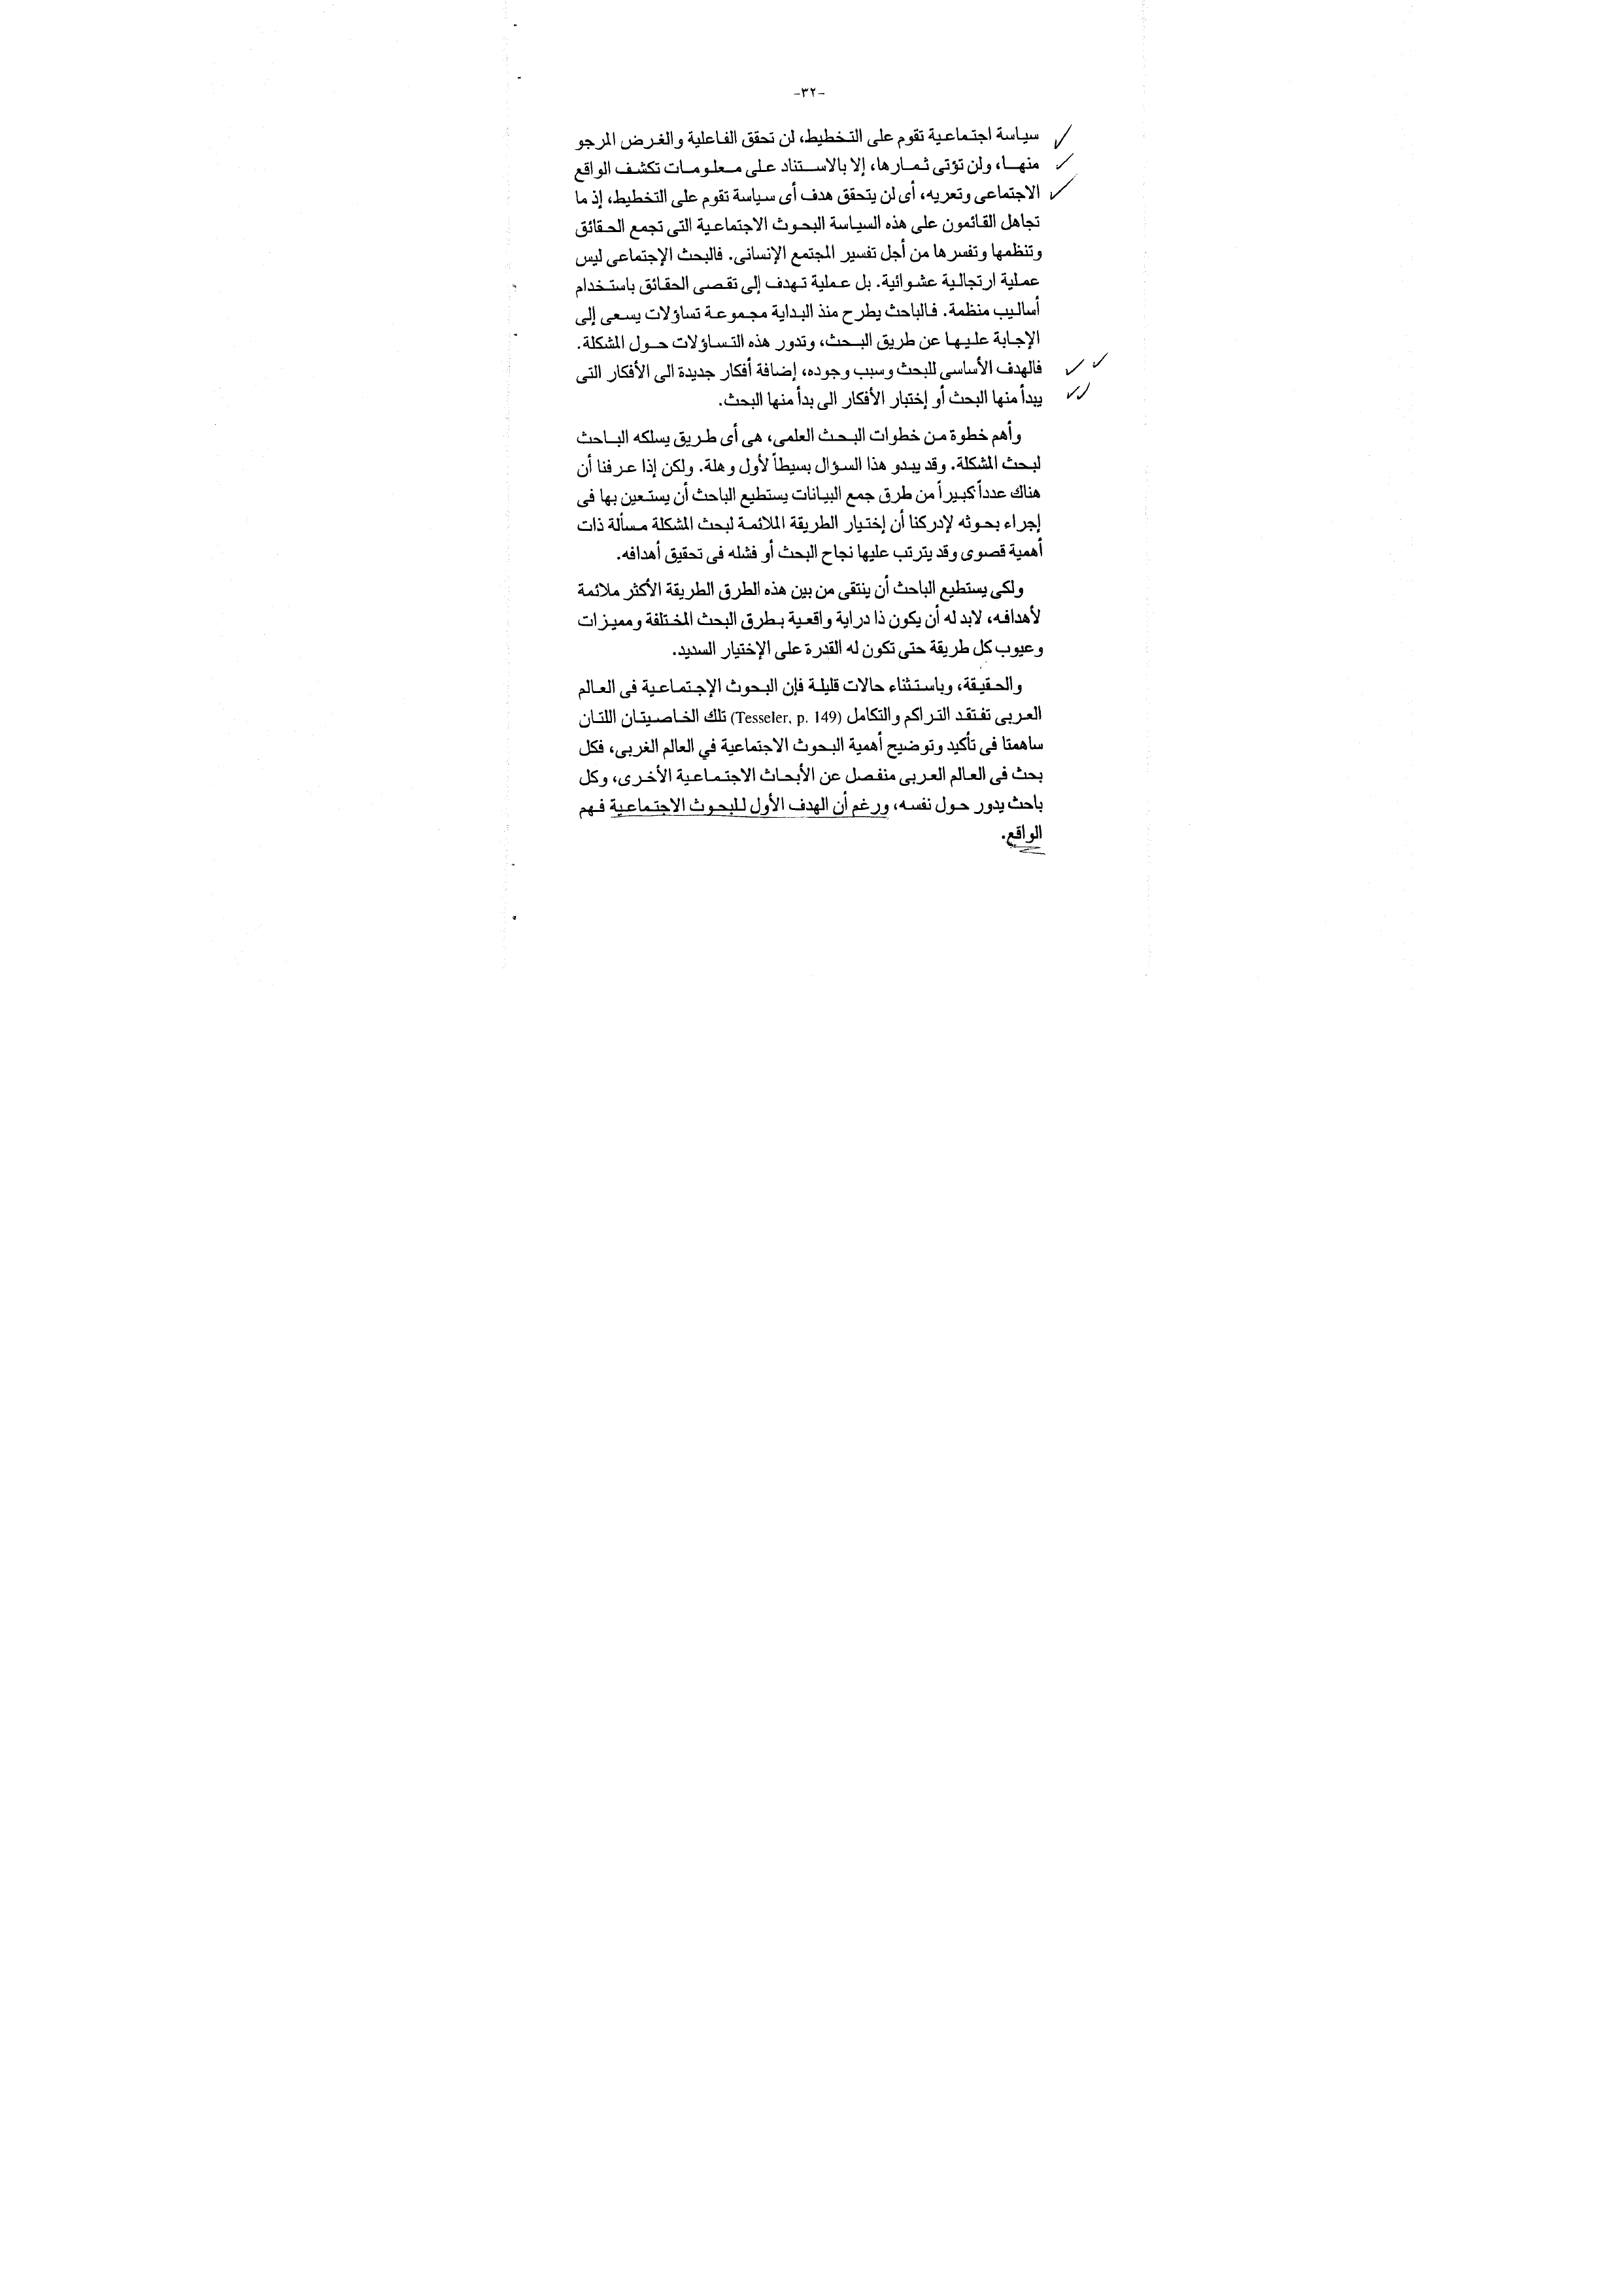 -٣٢-
سياسة اجتماعية تقوم على التخطيط، لن تحقق الفاعلية والغرض المرجو
منها، ولن تؤتى ثمارها، إلا بالاستناد على معلومات تكشف الواقع
الاجتماعى وتعريه، أى لن يتحقق هدف أى سياسة تقوم على التخطيط، إذ ما
تجاهل القائمون على هذه السياسة البحوث الاجتماعية التى تجمع الحقائق
وتنظمها وتفسرها من أجل تفسير المجتمع الإنسانى. فالبحث الإجتماعى ليس
عملية ارتجالية عشوائية. بل عملية تهدف إلى تقصى الحقائق باستخدام
أساليب منظمة. فالباحث يطرح منذ البداية مجموعة تساؤلات يسعى إلى
الإجابة عليها عن طريق البحث، وتدور هذه التساؤلات حول المشكلة.
فالهدف الأساسى للبحث وسبب وجوده، إضافة أفكار جديدة الى الأفكار التى
يبدأ منها البحث أو إختبار الأفكار الى بدأ منها البحث.
وأهم خطوة من خطوات البحث العلمى، هى أى طريق يسلكه الباحث
لبحث المشكلة. وقد يبدو هذا السؤال بسيطاً لأول وهلة. ولكن إذا عرفنا أن
هناك عدداً كبيراً من طرق جمع البيانات يستطيع الباحث أن يستعين بها فى
إجراء بحوثه لإدركنا أن إختيار الطريقة الملائمة لبحث المشكلة مسألة ذات
أهمية قصوى وقد يترتب عليها نجاح البحث أو فشله فى تحقيق أهدافه.
ولكى يستطيع الباحث أن ينتقى من بين هذه الطرق الطريقة الأكثر ملائمة
لأهدافه، لابد له أن يكون ذا دراية واقعية بطرق البحث المختلفة ومميزات
وعيوب كل طريقة حتى تكون له القدرة على الإختيار السديد.
والحقيقة، وباستثناء حالات قليلة فإن البحوث الإجتماعية فى العالم
العربى تفتقد التراكم والتكامل (Tesseler, p. 149) تلك الخاصيتان اللتان
ساهمتا فى تأكيد وتوضيح أهمية البحوث الاجتماعية في العالم الغربى، فكل
بحث فى العالم العربى منفصل عن الأبحاث الاجتماعية الأخرى، وكل
باحث يدور حول نفسه، ورغم أن الهدف الأول للبحوث الاجتماعية فهم
الواقع.